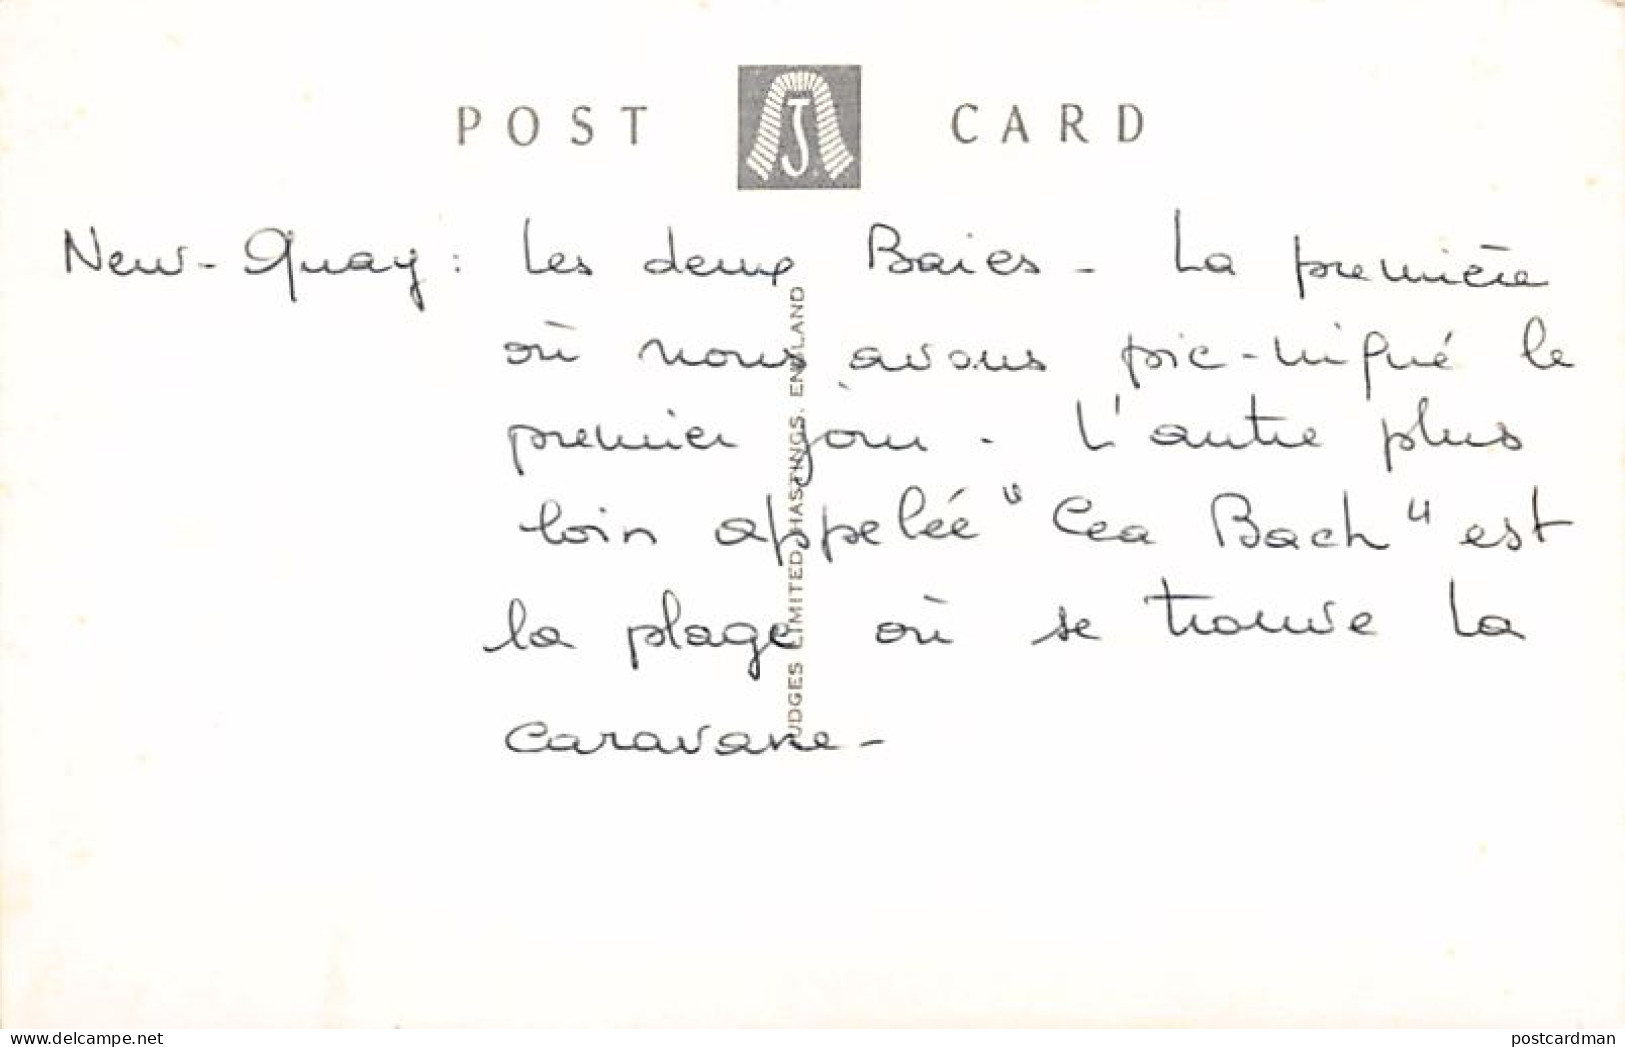 POST CARD
J
New-Quay : Les deux Baies - La première
où nous avons pic-niqué le
premier jour - L'autre plus
loin appelée "Cea Bach" est
la plage où se trouve la
caravane -
JUDGES LIMITED, HASTINGS, ENGLAND
www.delcampe.net
postcardman